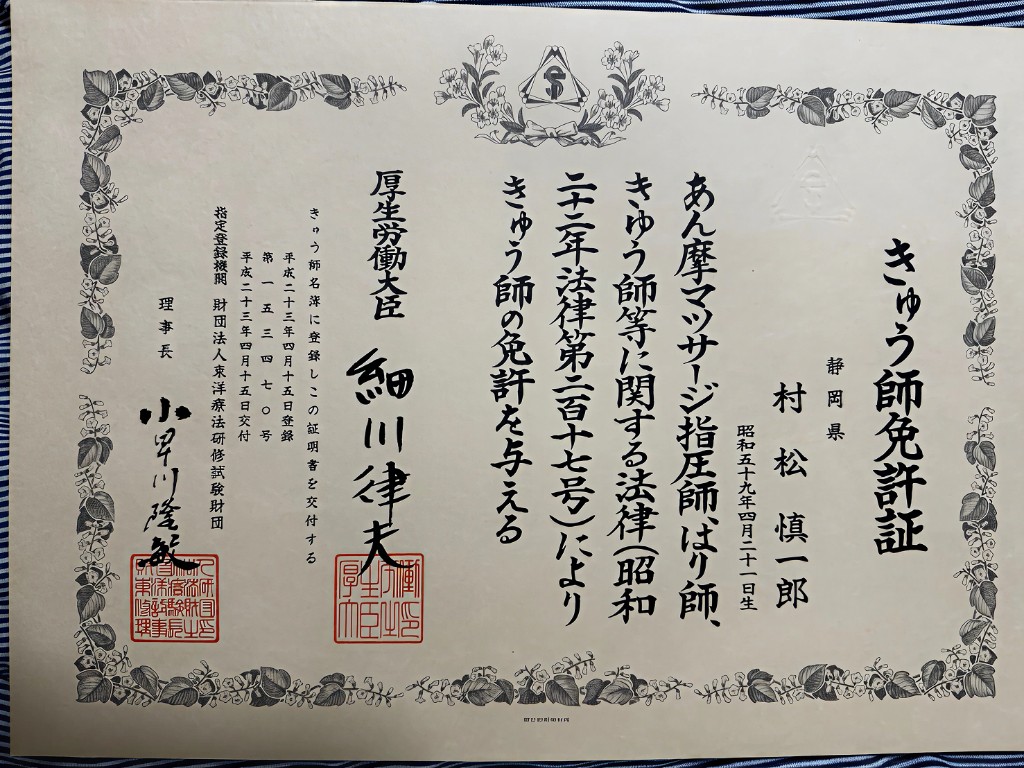 きゅう師免許証
静岡県
村松慎一郎
昭和五十九年四月二十一日生
あん摩マツサージ指圧師、はり師、
きゆう師等に関する法律(昭和
二十二年法律第二百十七号)により
きゅう師の免許を与える
厚生労働大臣 細川律夫
きゅう師名簿に登録しこの証明書を交付する
平成二十三年四月十五日登録
第一五三四七〇号
平成二十三年四月十五日交付
指定登録機関 財団法人東洋療法研修試験財団
理事長 小早川隆敏